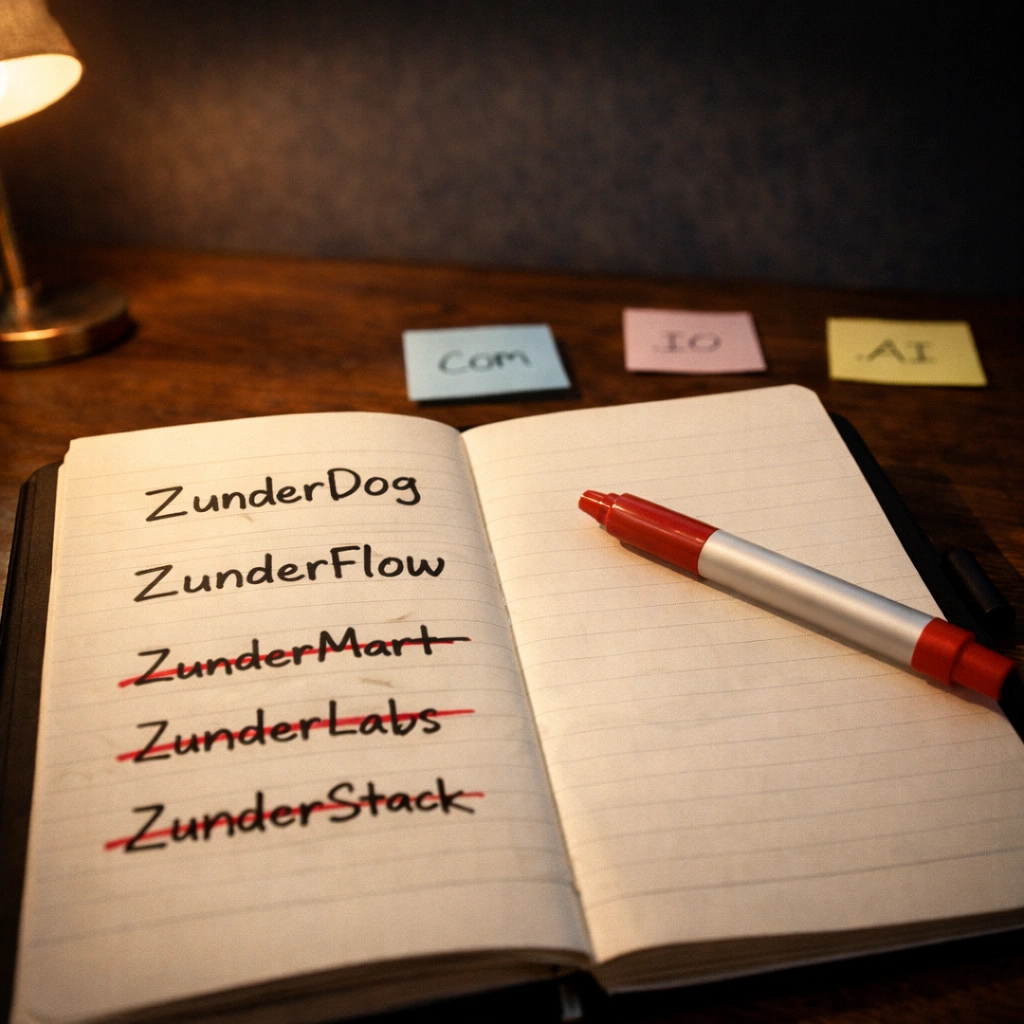 Com
.IO
.AI
ZunderDog
ZunderFlow
ZunderMart
ZunderLabs
ZunderStack